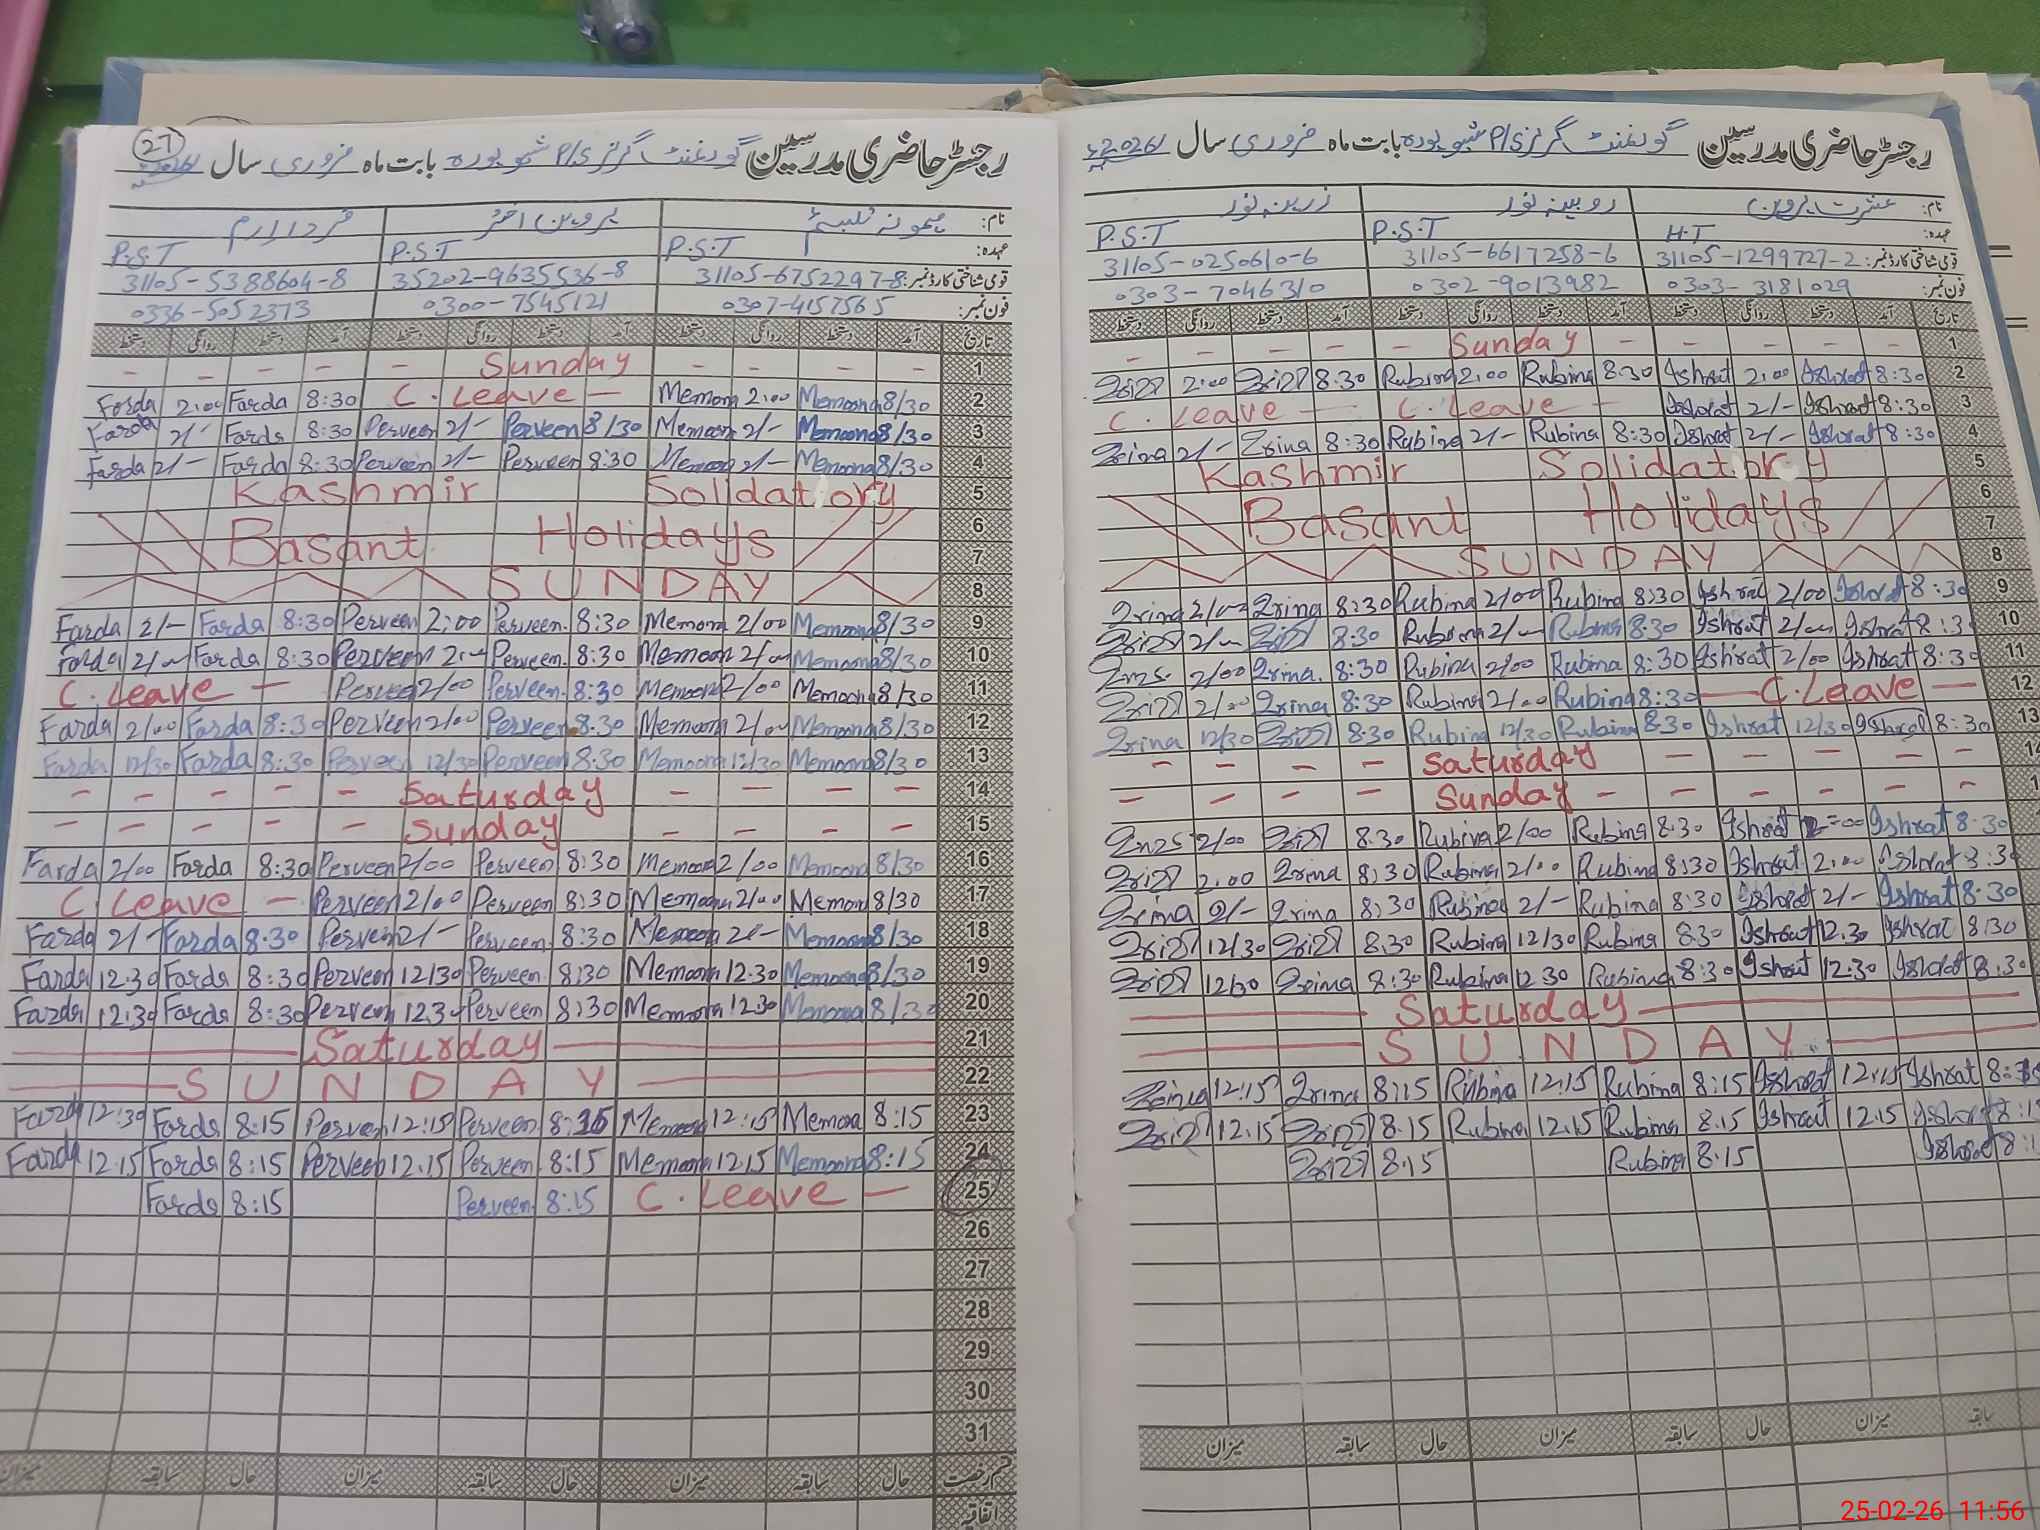 27
رجسٹر حاضری مدرسین گورنمنٹ گرلز P/S شیو پورہ بابت ماہ فروری سال
نام: میمونہ تبسم پروین اختر فردا ارم
عہدہ: P.S.T P.S.T P.S.T
31105-5388604-8 35202-9635536-8 31105-6752297-8 قومی شناختی کارڈ نمبر:
0336-5052373 0300-7545121 0307-4157565 فون نمبر:
تاریخ آمد دستخط روانگی دستخط آمد دستخط روانگی دستخط آمد دستخط روانگی دستخط
- - - - - Sunday - - - - 1
Farda 2:00 Farda 8:30 C. Leave - Memona 2:00 Memoona 8/30 2
Farda 2/- Farda 8:30 Perveen 2/- Perveen 8/30 Memoon 2/- Memoona 8/30 3
Farda 2/- Farda 8:30 Perveen 2/- Perveen 8:30 Memoon 2/- Memoona 8/30 4
Kashmir Solidatory 5
Basant Holidays 6
7
SUNDAY 8
Farda 2/- Farda 8:30 Perveen 2:00 Perveen. 8:30 Memoon 2/00 Memoona 8/30 9
Farda 2/00 Farda 8:30 Perveen 2:00 Perveen. 8:30 Memoon 2/00 Memoona 8/30 10
C. Leave - Perveen 2/00 Perveen. 8:30 Memoon 2/00 Memoona 8/30 11
Farda 2/00 Farda 8:30 Perveen 2/00 Perveen 8.30 Memoon 2/00 Memoona 8/30 12
Farda 12/30 Farda 8:30 Perveen 12/30 Perveen 8:30 Memoon 12/30 Memoona 8/30 13
- - - - - Saturday - - - - 14
- - - - - Sunday - - - - 15
Farda 2/00 Farda 8:30 Perveen 2/00 Perveen 8:30 Memoon 2/00 Memoona 8/30 16
C. Leave - Perveen 2/00 Perveen 8:30 Memoona 2/00 Memoon 8/30 17
Farda 2/- Farda 8.30 Perveen 2/- Perveen. 8:30 Memoon 2/- Memoona 8/30 18
Farda 12.30 Farda 8:30 Perveen 12/30 Perveen. 8:30 Memoona 12.30 Memoona 8/30 19
Farda 12:30 Farda 8:30 Perveen 12.30 Perveen 8:30 Memoona 12.30 Memoona 8/30 20
Saturday 21
SUNDAY 22
Farda 12:30 Farda 8:15 Perveen 12:15 Perveen 8:15 Memoon 12:15 Memoona 8:15 23
Farda 12.15 Farda 8:15 Perveen 12.15 Perveen 8:15 Memoon 12.15 Memoona 8:15 24
Farda 8:15 Perveen. 8:15 C. Leave - 25
26
27
28
29
30
31
قسم رخصت حال سابقہ میزان حال سابقہ میزان حال سابقہ میزان
اتفاقیہ
رجسٹر حاضری مدرسین گورنمنٹ گرلز P/S شیو پورہ بابت ماہ فروری سال 2026ء
نام: عشرت پروین روبینہ نور زرینہ نور
عہدہ: H.T P.S.T P.S.T
31105-0250610-6 31105-6617258-6 31105-1299727-2 قومی شناختی کارڈ نمبر:
0303-7046310 0302-9013982 0303-3181029 فون نمبر:
تاریخ آمد دستخط روانگی دستخط آمد دستخط روانگی دستخط آمد دستخط روانگی دستخط
- - - - - Sunday - - - - 1
2:00 8.30 Rubina 2:00 Rubina 8:30 Ishrat 2:00 Ishrat 8:30 2
C. Leave - C. Leave - Ishrat 2/- Ishrat 8:30 3
Zrina 2/- Zrina 8:30 Rubina 2/- Rubina 8:30 Ishrat 2/- Ishrat 8:30 4
Kashmir Solidatory 5
Basant Holidays 6
7
SUNDAY 8
Zrina 2/00 Zrina 8:30 Rubina 2/00 Rubina 8:30 Ishrat 2/00 Ishrat 8:30 9
2/00 8:30 Rubina 2/00 Rubina 8.30 Ishrat 2/00 Ishrat 8:3 10
2/00 Zrina. 8:30 Rubina 2/00 Rubina 8:30 Ishrat 2/00 Ishrat 8:3 11
2/00 Zrina 8:30 Rubina 2/00 Rubina 8:30 C. Leave - 12
Zrina 12/30 8.30 Rubina 12/30 Rubina 8.30 Ishrat 12/30 Ishrat 8:30 13
- - - - Saturday - - - -
- - - - Sunday - - - -
2/00 8.30 Rubina 2/00 Rubina 8.30 Ishrat 2:00 Ishrat 8.30
2.00 Zrina 8:30 Rubina 2/00 Rubina 8:30 Ishrat 2:00 Ishrat 8.3
Zrina 2/- Zrina 8:30 Rubina 2/- Rubina 8:30 Ishrat 2/- Ishrat 8.30
12/30 8.30 Rubina 12/30 Rubina 8.30 Ishrat 12.30 Ishrat 8/30
12/30 Zrina 8:30 Rubina 12.30 Rubina 8:30 Ishrat 12.30 Ishrat 8.30
Saturday
SUNDAY
Zrina 12:15 Zrina 8:15 Rubina 12.15 Rubina 8:15 Ishrat 12:15 Ishrat
12.15 8.15 Rubina 12.15 Rubina 8.15 Ishrat 12.15 Ishrat
8.15 Rubina 8.15 Ishrat
سابقہ میزان حال سابقہ میزان حال سابقہ میزان
25-02-26 11:56